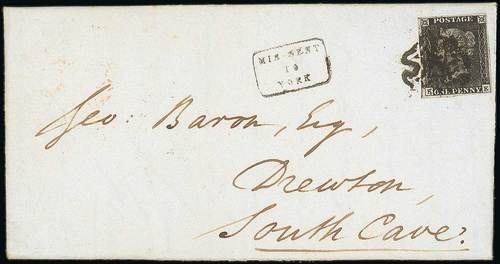 POSTAGE
ONE PENNY
MIS-SENT
TO
YORK
Geo: Baron, Esq,
Drewton,
South Cave.